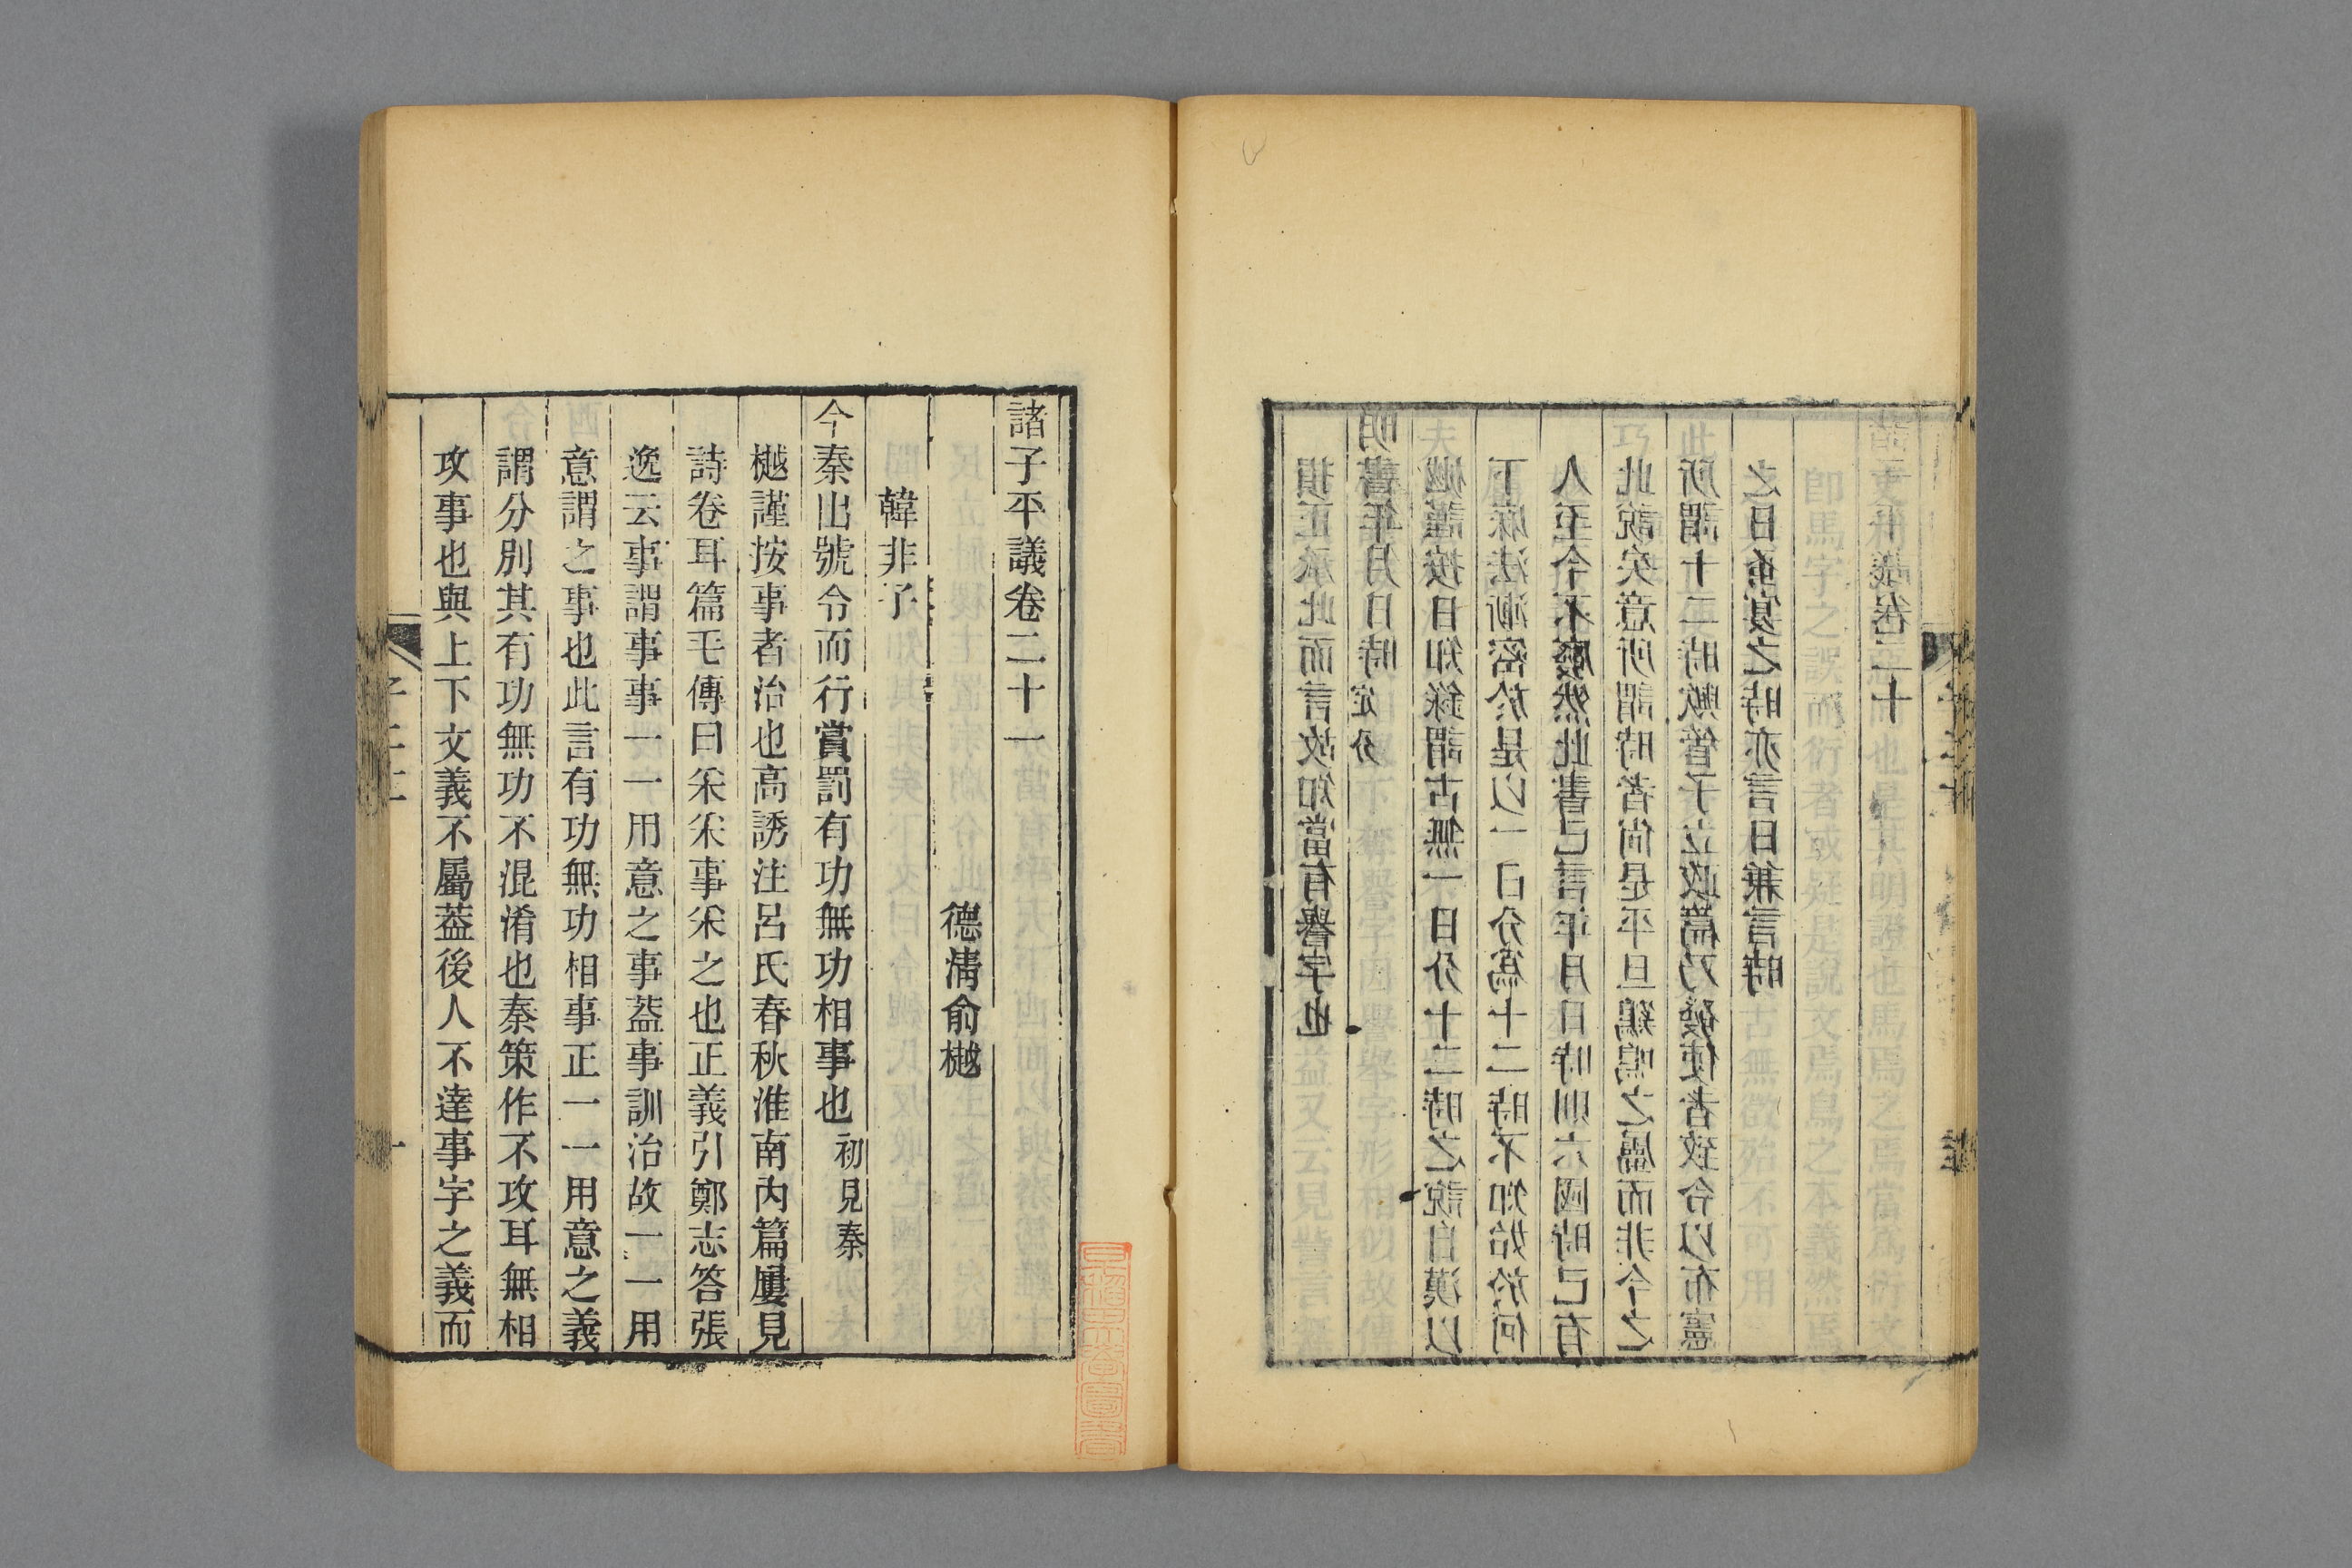 損正承此而言故知當有譽字也
明書年月日時定分
樾謹按日知錄謂古無一日分十二時之說自漢以
下厤法漸密於是以一日分爲十二時不知始於何
人至今不廢然此書已言年月日時則六國時已有
此說矣意所謂時者尙是平旦鷄鳴之屬而非今之
所謂十二時歟管子立政篇乃發使者致令以布憲
之日蚤宴之時亦言日兼言時
諸子平議卷二十
諸子平議卷二十一
德清俞樾
韓非子
今秦出號令而行賞罰有功無功相事也初見秦
樾謹按事者治也高誘注呂氏春秋淮南內篇屢見
詩卷耳篇毛傳曰采采事采之也正義引鄭志答張
逸云事謂事事一一用意之事葢事訓治故一一用
意謂之事也此言有功無功相事正一一用意之義
謂分別其有功無功不混淆也秦策作不攻耳無相
攻事也與上下文義不屬葢後人不達事字之義而